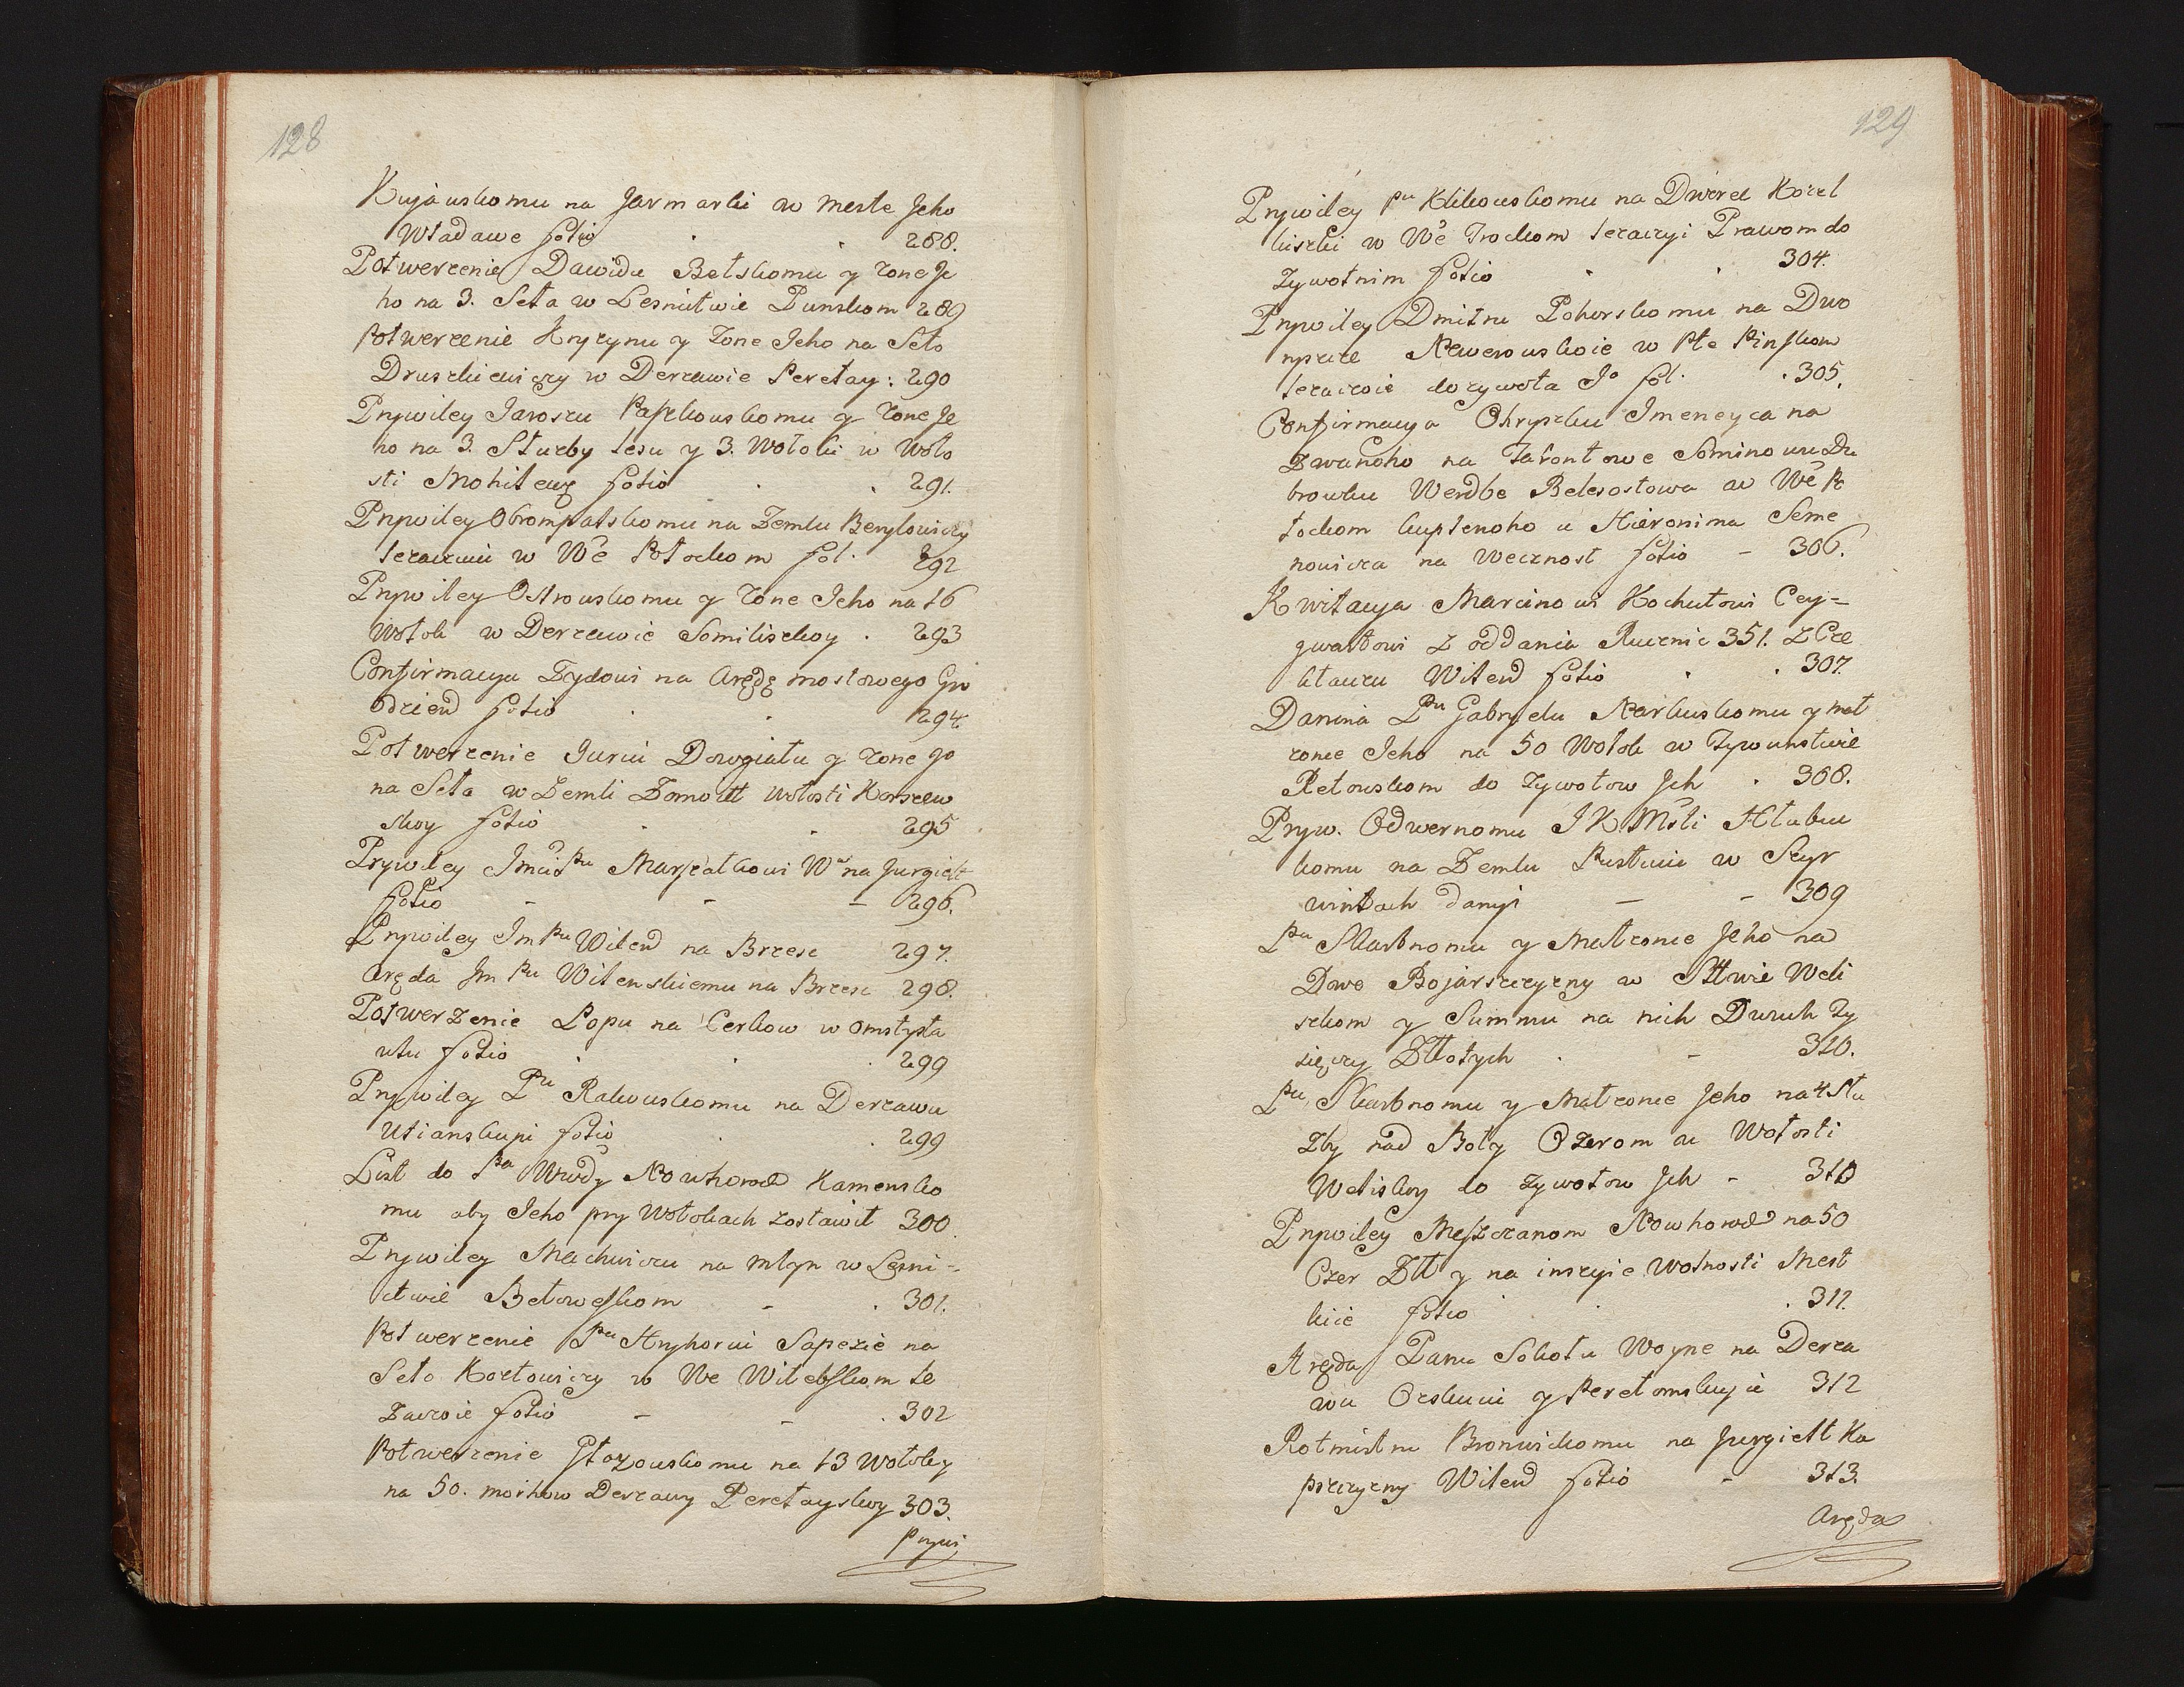 128
Kujauskomu na Jarmarki w meste Jeho
Władawe folio 288.
Potwerzenie Dawidu Bełskomu y żone Je
ho na 3. Seła w Lesnictwie Punskom 289
Potwerzenie Hrycynu y Żone Jeho na Seło
Druszkiewiczy w Derżawie Perełay: 290
Prywiley Jaroszu Paszkouskomu y żone Je
ho na 3. Służby lesu y 3. Wołoki w Woło
sti Mohilew folio 291.
Prywiley Obrompalskomu na Zemlu Beryłowiczy
leżaczuiu w We Połockom fol. 292
Prywiley Ostrouskomu y żone Jeho na 16
Wołok w Derżawie Somiliszkoy 293
Confirmacya Żydowi na Arędę mostowego Gro
dzien folio 294.
Potwerzenie Juriu Dowgiału y żone Jo
na Seła w Zemli Żomoitt wołosti Korszew
skoy folio 295
Prywiley Jmci Pu Marszałkowi W na Jurgielt
folio 296.
Prywiley Jm Pu Wilen na Brzesc 297.
Aręda Jm Pu Wilenskiemu na Brzesc 298.
Potwerżenie Popu na Cerkow w Omstysła
wlu folio 299
Prywiley Pu Rakouskomu na Derżawu
Utianskuju folio 299
List do Pa Wwdy Nowhorod Kamensko
mu aby Jeho pry Wołokach zostawił 300.
Prywiley Machwiczu na młyn w Lesni-
ctwie Bełoweskom 301.
Potwerzenie Pu Hryhoriu Sapezie na
Seło Kozłowiczy w We Witebskom le
żaczoie folio 302
Potwerżenie Głazouskomu na 13 Wołoky
na 50. morhow Derżawy Perełayskoy 303.
Prywi
129
Prywiley Pu Klikouskomu na Dworec Kozel
kiszki w We Trockom leżaczyi Prawom do
żywotnim folio 304.
Prywiley Dmitru Pohorskomu na Dwo
ryszcze Newerouskoie w Pte Pinskom
leżaczoie dożywota Jo fol. 305.
Confirmacya Ohryzku Imeneyca na
Zwanoho na Tarontowe Sominowu Du
browku Werdbe Belesostowa w We Po
łockom kuplenoho u Hieronima Seme
nowicza na Wecznost folio 306.
Kwitacya Marcinowi Kochutowi Cey-
gwartowi z oddania Rucznic 351. z Cze
khauzu Wilen folio 307.
Danina Pu Gabryelu Narkuskomu y mał
żonce Jeho na 50 Wołok w Tywunstwie
Retouskom do żywotow Jch 308.
Pryw. Odwernomu JKMsti Hłubu
komu na Zemlu Pustuiu w Szyr
wintach danyi 309
Pu Skarbnomu y Małżonce Jeho na
Dwe Bojarszczyzny w Sttwie Weli
szkom y Summu na nich Dwuch Ty
sięczy Złłotych 310.
Pu Skarbnomu y Małżonce Jeho na 4 Słu
żby nad Boły Ozerom w Wołosti
Weliskoy do żywotow Jch 310
Prywiley Meszczanom Nowhorod na 50
Czer Złł y na inszyie Wolnosti Mest
kiie folio 311.
Aręda Panu Sokołu Woyne na Derża
wu Orskuiu y Perełomskuju 312
Rotmistru Bronickomu na Jurgielt Ka
pszczyzny Wilen folio 313.
Aręda